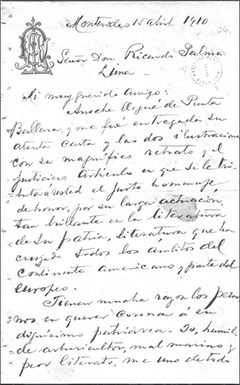 Montevideo 15 Abril 1910
Señor Don Ricardo Palma
Lima.
Mi muy querido amigo:
Anoche llegué de Punta
Ballena, y me fué entregada su
atenta carta y las dos ilustraciones
con su magnífico retrato y el
judicioso artículo en que se le tri-
buta á usted el justo homenaje
de honor, por su larga actuación,
tan brillante en la literatura
de su patria, literatura que ha
cruzado todos los ámbitos del
continente americano y parte del
europeo.
Tienen mucha razón los perua-
nos en querer coronar á su
dignísimo patriarca. Yo, humil-
de arboricultor, mal marino y
peor literato, me uno de todo